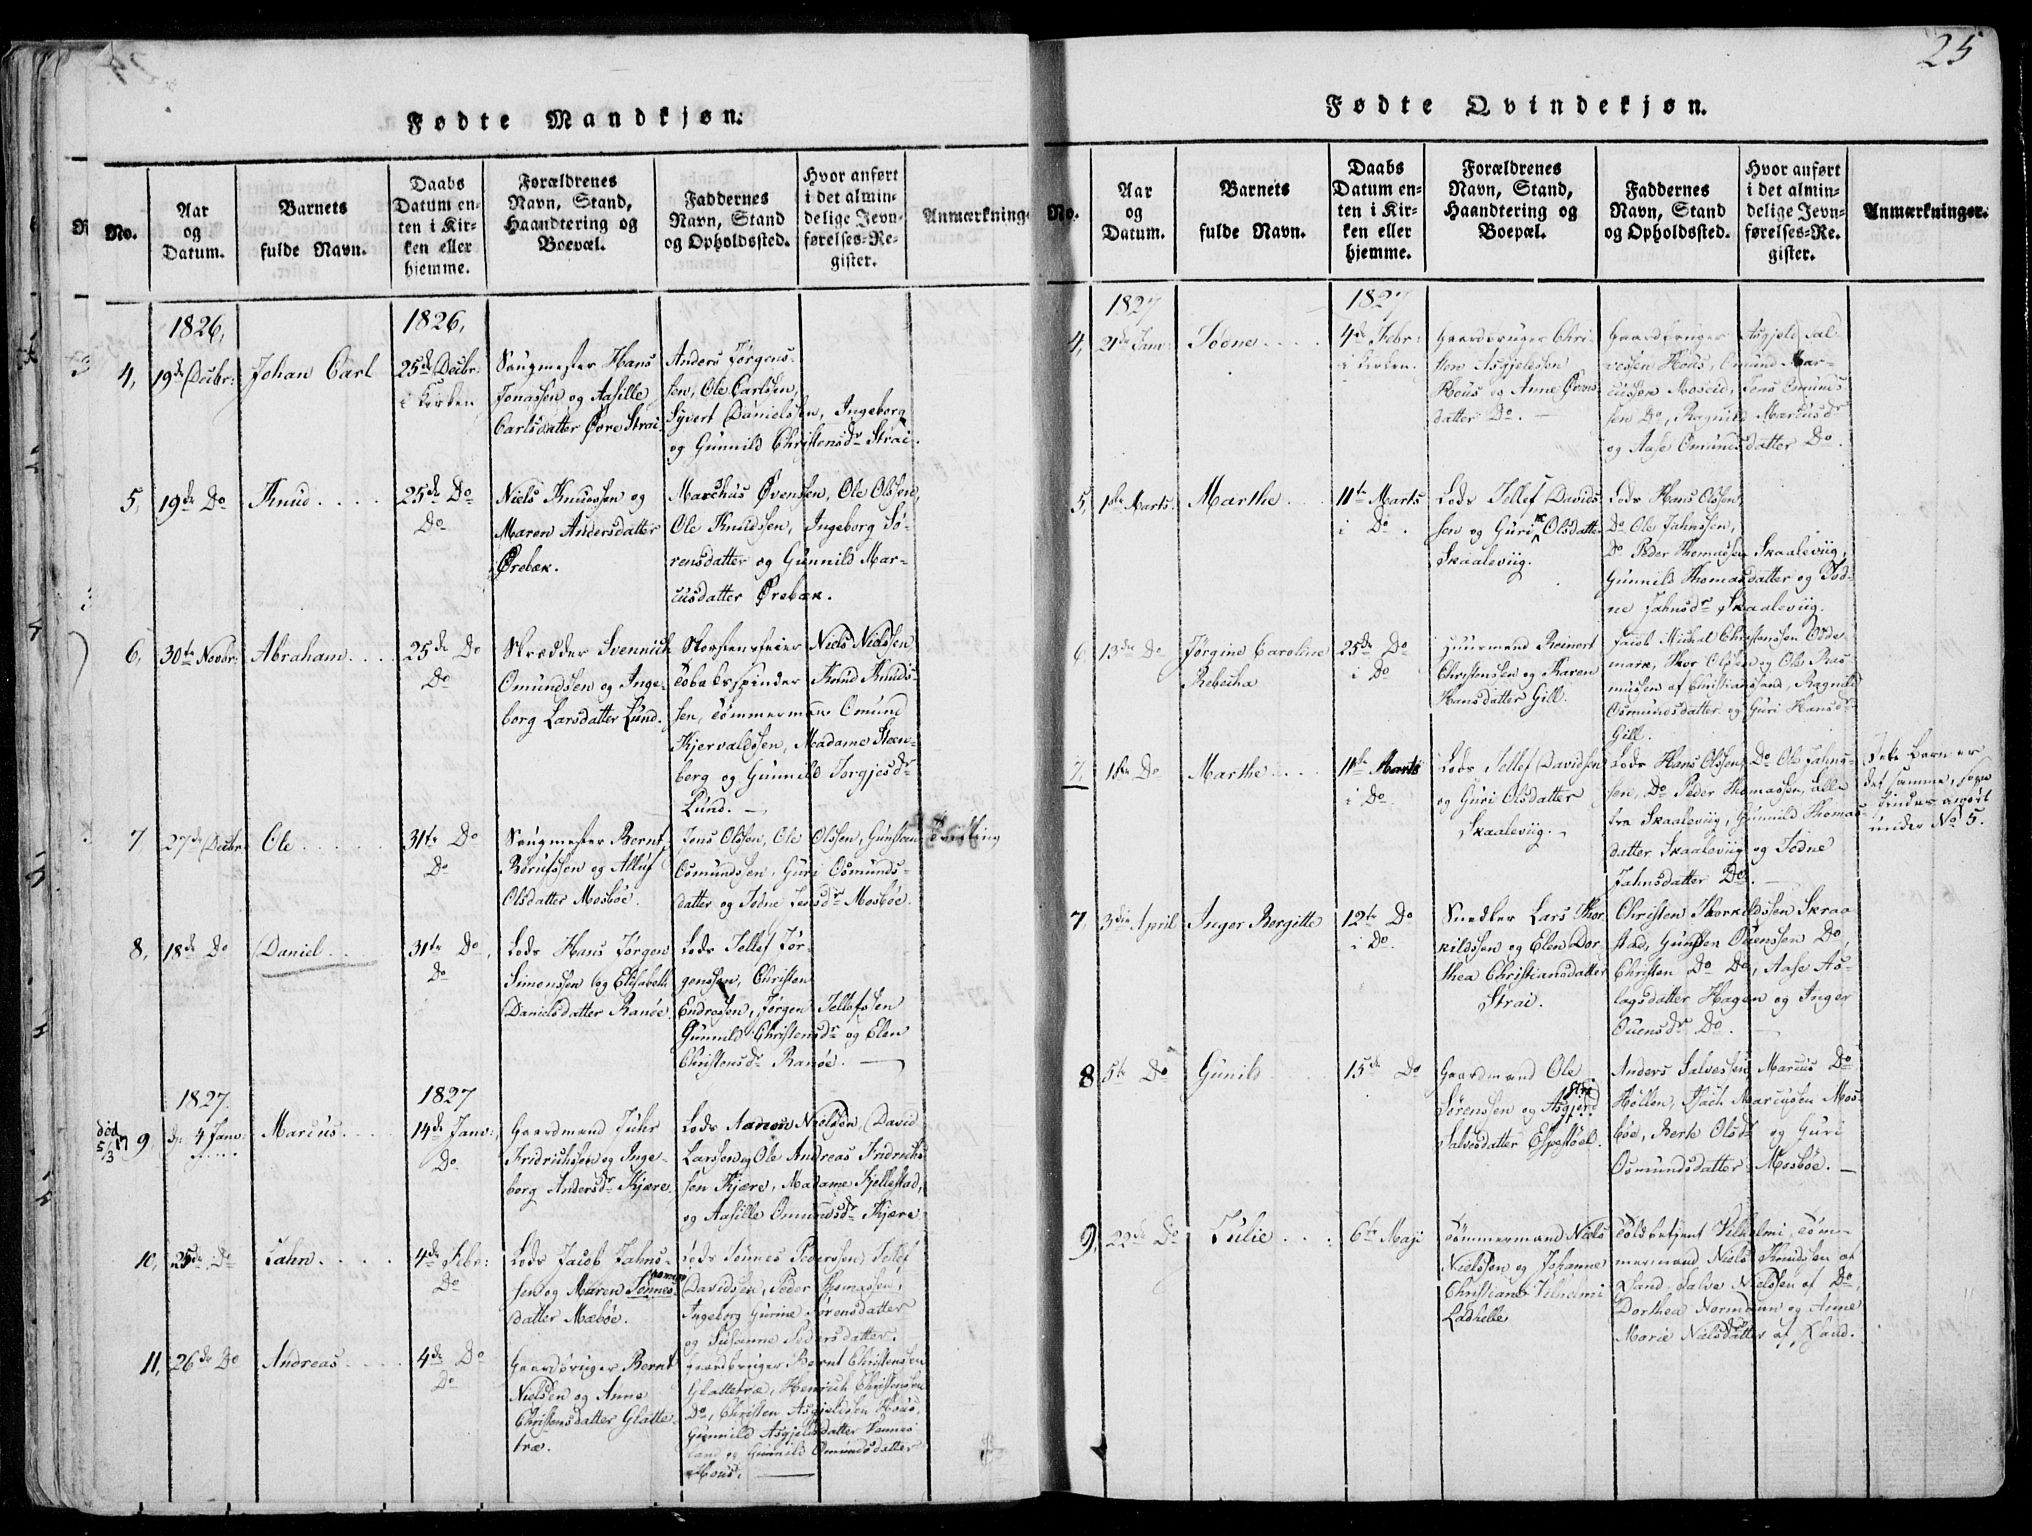 25
Fødte Mandkjøn.
No.
Aar
og
Datum.
Barnets
fulde Navn.
Daabs
Datum en-
ten i Kir-
ken eller
hjemme.
Forældrenes
Navn, Stand,
Haandtering og
Boepæl.
Faddernes
Navn, Stand
og Opholdssted.
Hvor anført
i det almin-
delige Jevn-
førelses-Re-
gister.
Anmærkning-
1826,
1826,
4,
19de Decbr:
Johan Carl
25de Decbr:
i Kirken
Sangmester Hans
Jonassen og Aasille
Carlsdatter Øvre Strai
Anders Jørgens-
sen, Ole Carlsen,
Syvert Danielssen, Ingeborg
og Gunnild Christensdr Strai.
5,
19de Do
Knud
25de Do
Do
Niels Knudssen og
Maren Andersdatter
Ørebæk.
Marchus Øvensen, Ole Olssen,
Ole Knudssen, Ingeborg Sø-
rensdatter og Gunnild Mar-
cusdatter Ørebæk.
6,
30te Novbr:
Abraham
25de Do
Do
Skrædder Svennich
Omundssen og Inge-
borg Larsdatter Lund.
Skorstensfeier Niels Nielssen
Tobaksspinder Knud Knuds-
sen, Tømmerman Omund
Kjervaldssen, Madame Steen-
berg og Gunnild Torgjesdr
Lund. —
7
27de Decbr
Ole
31te Do
Do
Sangmester Bernt
Børufssen og Alluf
Olsdatter Mosbøe.
Jens Olssen, Ole Olssen, Gunstan
Osmundssen, Guri Osmunds-
datter og Todne Jensdr Mosbøe.
Tvilling
8,
18de Do
Daniel
31te Do,
Do
Lods Hans Jørgen
Simonssen og Elisabeth
Danielsdatter Randøe.
Lods Tellef Jør-
genssen, Christen
Endressen, Jørgen Tellefssen
Gunnild Christensdr og Elen
Christensdr Randøe. —
1827.
1827
død
5/3 27
9
d. 4 Janv:
Marcus
14de Janv:,
Do
Gaardmand Juhr
Fridrichssen og Inge-
borg Andersdr Kjære
Lods Aanen Nielsen, David
Larssen og Ole Andreas Fridrichs
sen Kjære, Madame Kjellestad,
og Aasille Omundsdr Kjære
10,
25de Do
Jahn
4de Febr:
Do
Lods Jacob Jahns-
sen og Maren Tønnes-
datter Mæbøe.
Lods Tønnes Pederssen, Tellef
Davidssen, Peder Thomassen,
Ingeborg Gurine Sørensdatter
og Susanne Pedersdatter.
11,
26de Do
Andreas
4de Do
Do
Gaardbruger Bernt
Nielsen og Anne
Christensdatter Glatte-
træ.
Gaardbruger Bernt Christensen
Glattetræ, Henrich Christensen
Do, Christen Asgjeldsen Hous,
Gunnild Asgjeldsdatter
og Gunnild Omundsdatter
Hous. —
Fødte Qvindekjøn.
No.
Aar
og
Datum.
Barnets
fulde Navn.
Daabs
Datum en-
ten i Kir-
ken eller
hjemme.
Forældrenes
Navn, Stand,
Haandtering og
Boepæl.
Faddernes
Navn, Stand
og Opholdssted.
Hvor anført
i det almin-
delige Jevn-
førelses-Re-
gister.
Anmærkninger.
1827
1827
4,
21de Janv:
Todne
4de Febr:
i Kirken.
Gaardbruger Chri-
sten Asgjelssen
Hous og Anne Øvns
datter Do. —
Gaardbruger Asgjeld Sal-
vessen Hous, Omund Mar-
cussen Moseid, Jens Omunds
sen Do, Ragnild Marcusdr
og Aase Omundsdatter Do.
5,
1ste Marts.
Marthe
11te Marts
i Do.
Lods Tellef Davids
sen og Guri Olsdatter
Skaaleviig.
Lods Hans Olssen,
Do Ole Jahnssen,
Do Peder Thomassen Skaaleviig,
Gunnild Thomasdatter og Tod-
ne Jahnsdr Skaaleviig.
6,
13de Do
Jørgine Caroline
Rebecha
25de Do
i Do
Huusmand Reinert
Christenssen og Karen
Hansdatter Gill.
Jacob Michal Christenssen Odde-
mark, Thor Olssen og Ole Ras-
mussen af Christianssand, Ragnild
Osmundsdatter og Guri Hansdr
Gill.
7,
1ste Do
Marthe
11te Marts
i Do.
Lods Tellef Davidsen
og Guri Olsdatter
Skaaleviig.
Lods Hans Olssen, Do Ole Jahns-
sen, Do Peder Thomassen, alle
fra Skaaleviig, Gunnild Thomas-
datter Skaaleviig og Todne
Jahnsdatter Do. —
Dette Barn er
det samme, som
findes anført
under No 5.
7,
3die April
Inger Bergitte
12te Do
i Do.
Snedker Lars Thor
kildssen og Elen Dor
thea Christiansdatter
Strai.
Christen Thorkildssen Skraa
stad, Gunsten Ouenssen Do,
Christen Do Do, Aase As-
lagsdatter Hagen og Inger
Ouensdr Do. —
8
5te Do
Gunild
15de Do
Gaardmand Ole
Sørenssen og Asgjerd
Salvesdatter Espestøel.
Anders Salvessen, Marcus Do
Høllen, Isach Marcussen Mos-
bøe, Berte Olsdr og Guri
Osmundsdatter Mosbøe. —
9,
22de Do
Julie
6te Maji
Tømmermand Niels
Nielssen og Johanne
Christiane Vilhelmi
Ladhelle
Toldbetjent Vilhelmi, Tøm-
mermand Niels Knudssen af
Lund, Salve Nielssen af Do,
Dorthea Normann og Anne
Marie Nielsdatter af Lund.